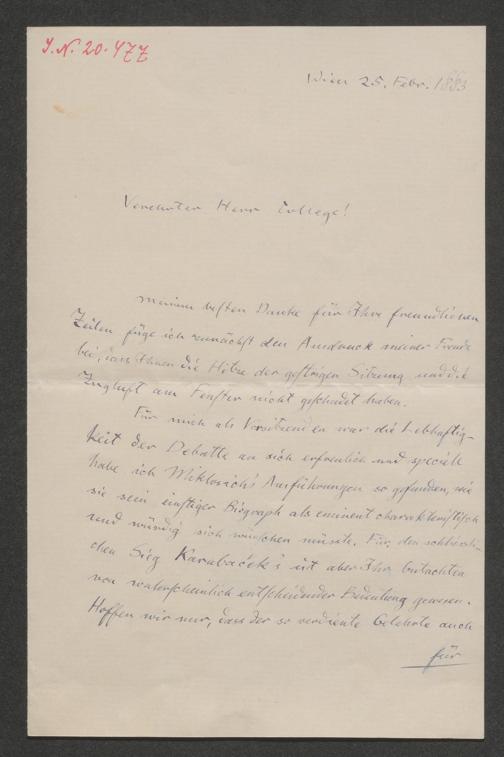 I.N. 20.477
Wien 25. Febr. 1883
Verehrter Herr College!
Meinem besten Danke für Ihre freundlichen
Zeilen füge ich zunächst den Ausdruck meiner Freude
bei, dass Ihnen die Hitze der gestrigen Sitzung und die
Zugluft am Fenster nicht geschadet haben.
Für mich als Vorsitzenden war die Lebhaftig-
keit der Debatte an sich erfreulich und speciell
habe ich Miklosich's Ausführungen so gefunden, wie
sie sein einstiger Biograph als eminent charakteristisch
und würdig sich wünschen müsste. Für den schliessli-
chen Sieg Karabaček's ist aber Ihr Gutachten
von wahrscheinlich entscheidender Bedeutung gewesen.
Hoffen wir nur, dass der so verdiente Gelehrte auch
für